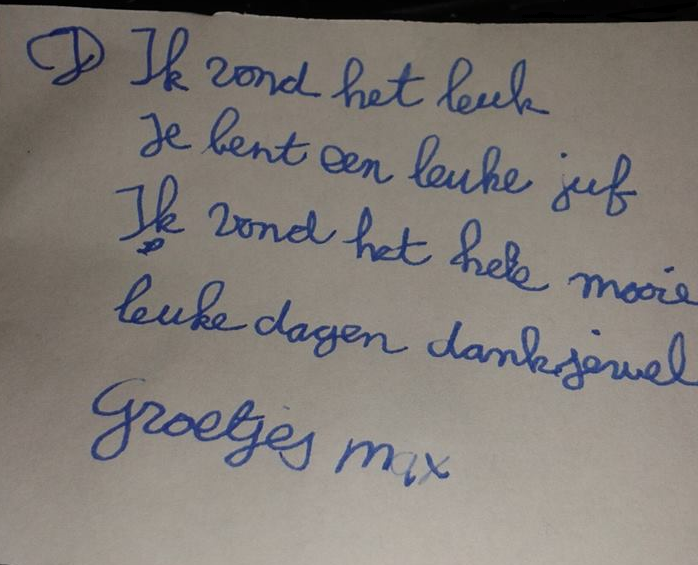 Ik vond het leuk
Je bent een leuke juf
Ik vond het hele mooie
leuke dagen dankjewel
Groetjes max